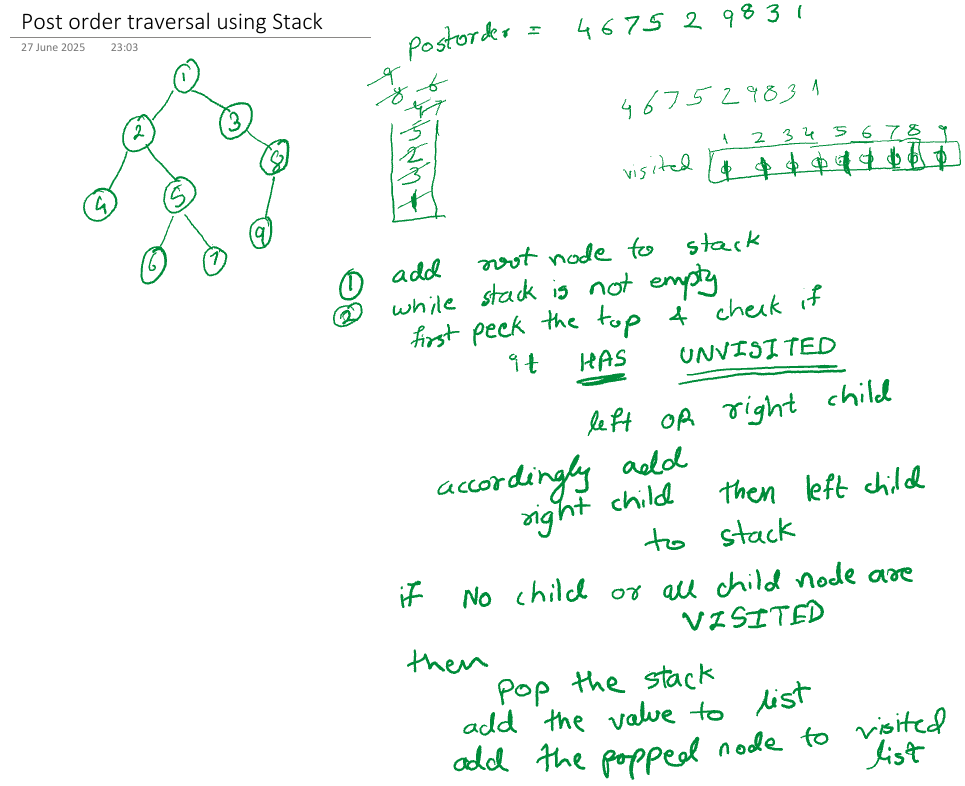 Post order traversal using Stack
27 June 2025 23:03
Postorder = 4 6 7 5 2 9 8 3 1
1
2
3
4
5
8
6
7
9
9
8 6
4 7
5
2
3
1
4 6 7 5 2 9 8 3 1
1 2 3 4 5 6 7 8 9
visited
① add root node to stack
② while stack is not empty
first peek the top & check if
it HAS UNVISITED
left OR right child
accordingly add
right child then left child
to stack
if No child or all child node are
VISITED
then
Pop the stack
add the value to list
add the popped node to visited
list